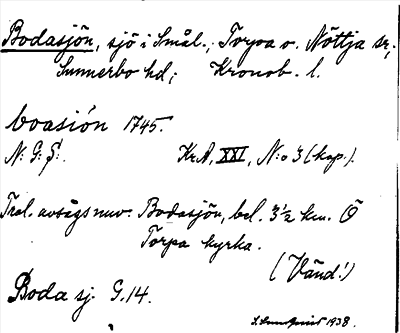 Bodasjön, sjö i Smål., Torpa o. Nöttja sr,
Sunnerbo hd; Kronob. l.
boasión 1745.
N: G: S:. Kr.A, XXI, N:o 3 (kop.).
Trol. avsågs nuv. Bodasjön, bel. 3½ km. Ö
Torpa kyrka.
(Vänd!)
Boda sj. G.14.
1938.